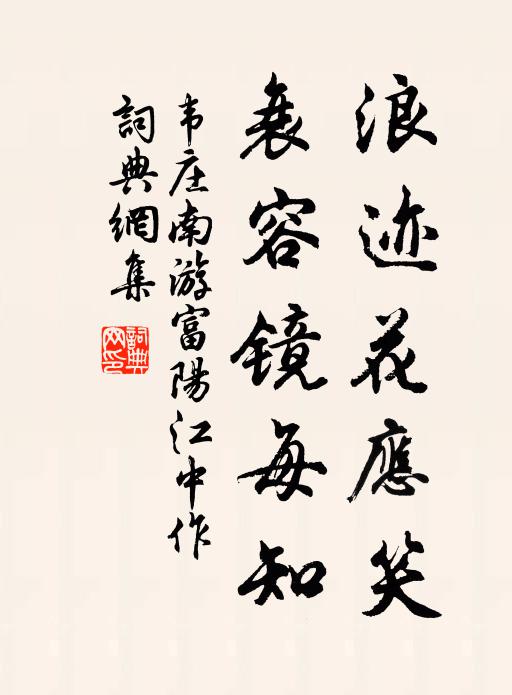 浪迹花應笑
衰容镜每知
韦庄南游富陽江中作
詞典網集
詞典網印